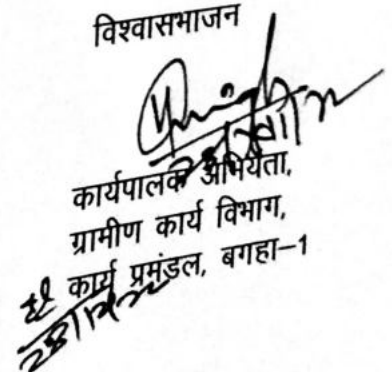 विश्वासभाजन
कार्यपालक अभियंता,
ग्रामीण कार्य विभाग,
कार्य प्रमंडल, बगहा–1